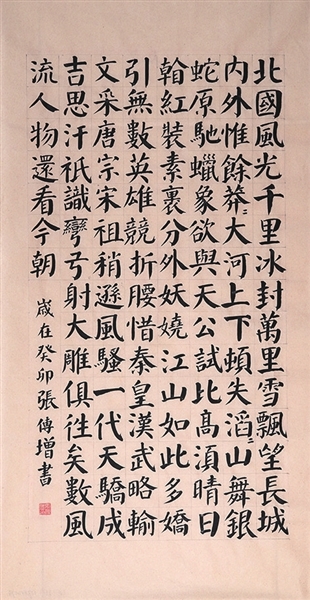 北國風光千里冰封萬里雪飄望長城
内外惟餘莽〻大河上下頓失滔〻山舞銀
蛇原馳蠟象欲與天公試比高湏晴日
翰紅裝素裹分外妖嬈江山如此多嬌
引無數英雄競折腰惜秦皇漢武略輸
文采唐宗宋祖稍遜風騷一代天驕成
吉思汗祇識彎弓射大雕俱往矣數風
流人物還看今朝
歲在癸卯張傳增書